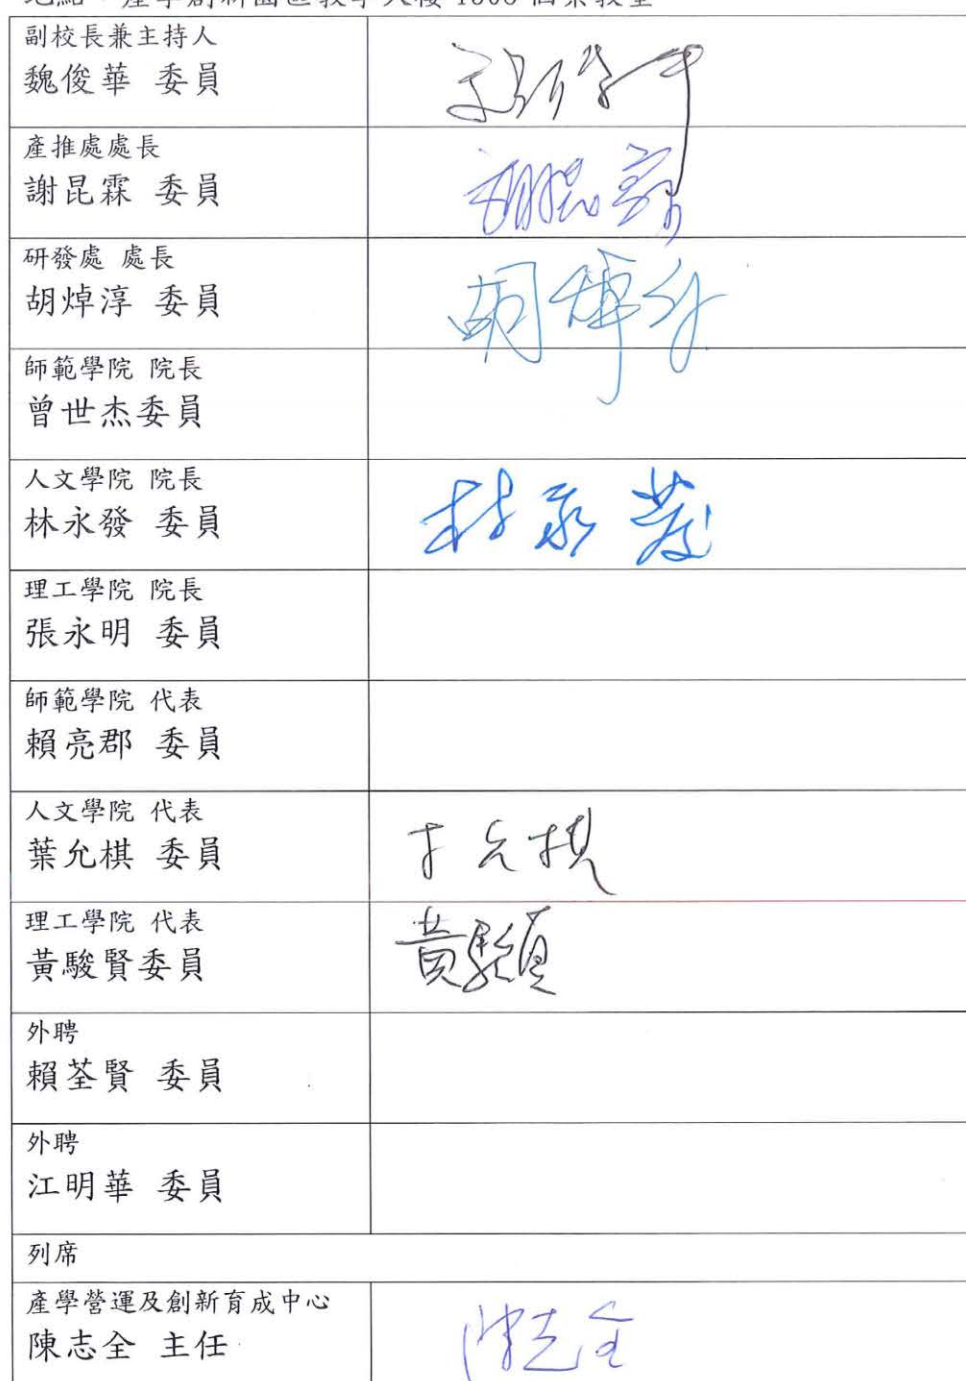 地點：產學創新園區教學大樓
副校長兼主持人
魏俊華 委員
產推處處長
謝昆霖 委員
研發處 處長
胡焯淳 委員
胡焯淳
師範學院 院長
曾世杰委員
人文學院 院長
林永發 委員
林永發
理工學院 院長
張永明 委員
師範學院 代表
賴亮郡 委員
人文學院 代表
葉允棋 委員
理工學院 代表
黃駿賢委員
黃駿賢
外聘
賴荃賢 委員
外聘
江明華 委員
列席
產學營運及創新育成中心
陳志全 主任
陳志全